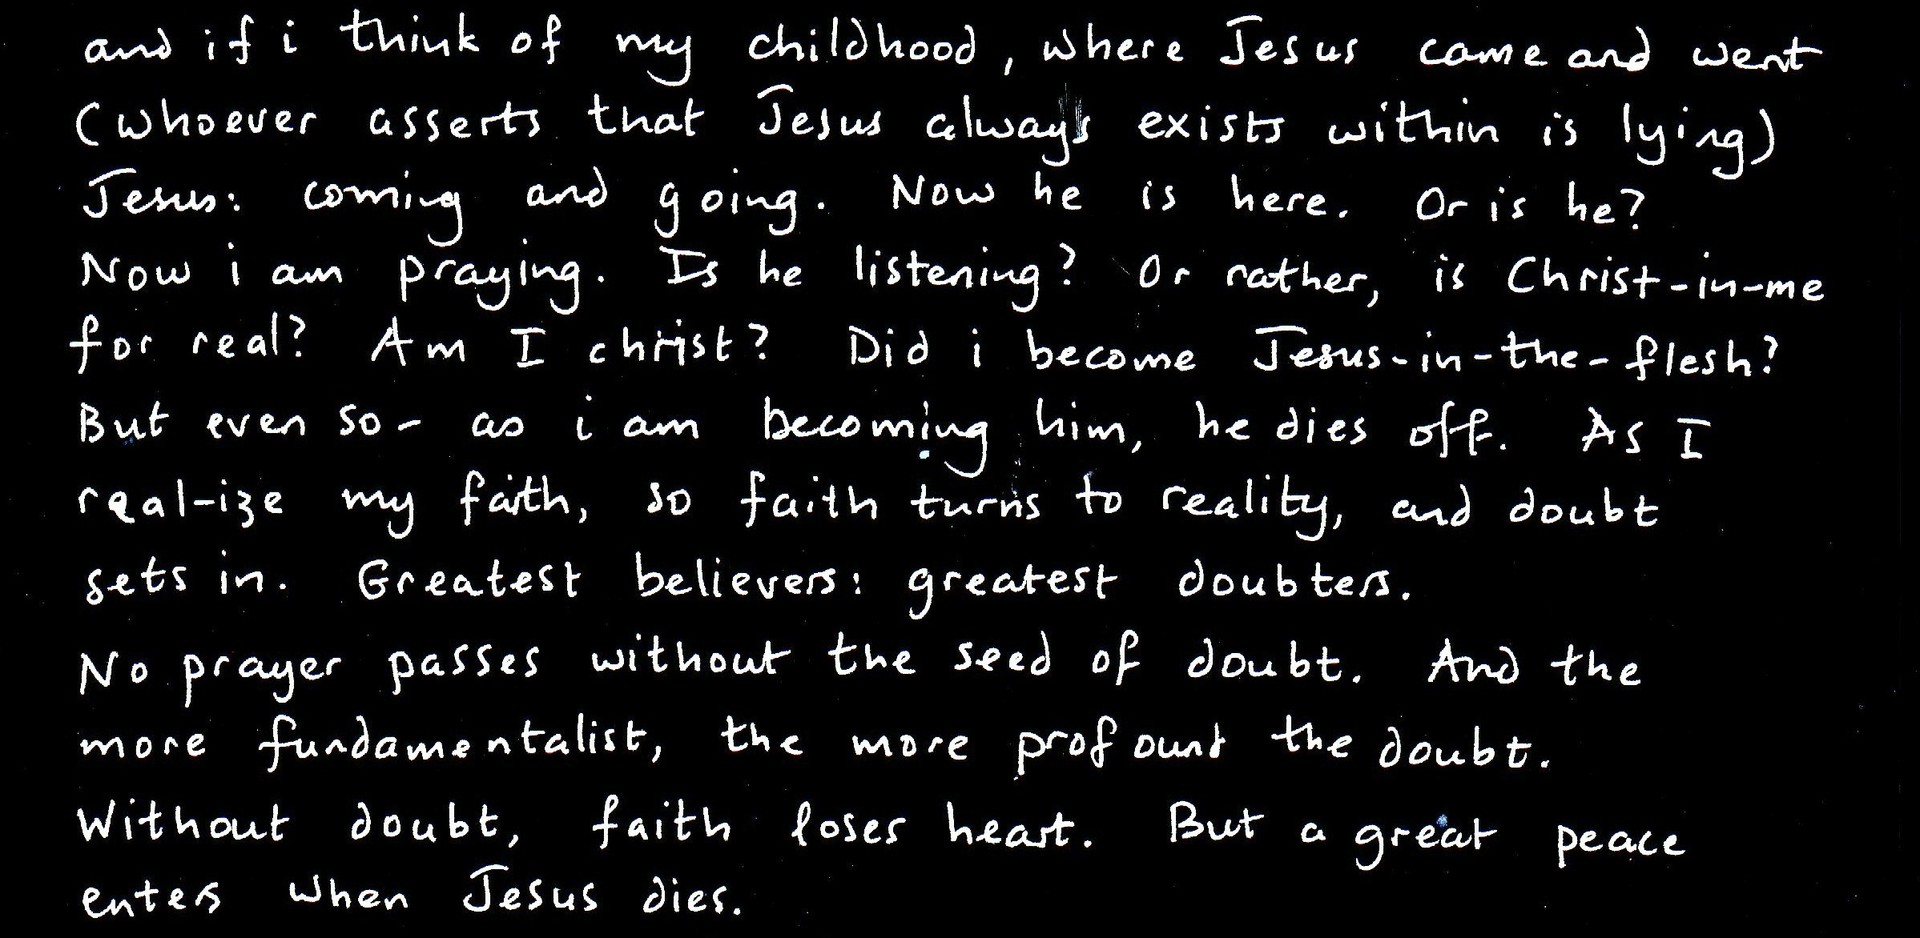 and if i think of my childhood, where Jesus came and went
(whoever asserts that Jesus always exists within is lying)
Jesus: coming and going. Now he is here. Or is he?
Now i am praying. Is he listening? Or rather, is Christ-in-me
for real? Am I christ? Did i become Jesus-in-the-flesh?
But even so- as i am becoming him, he dies off. As I
real-ize my faith, so faith turns to reality, and doubt
sets in. Greatest believers: greatest doubters.
No prayer passes without the seed of doubt. And the
more fundamentalist, the more profound the doubt.
Without doubt, faith loses heart. But a great peace
enters when Jesus dies.